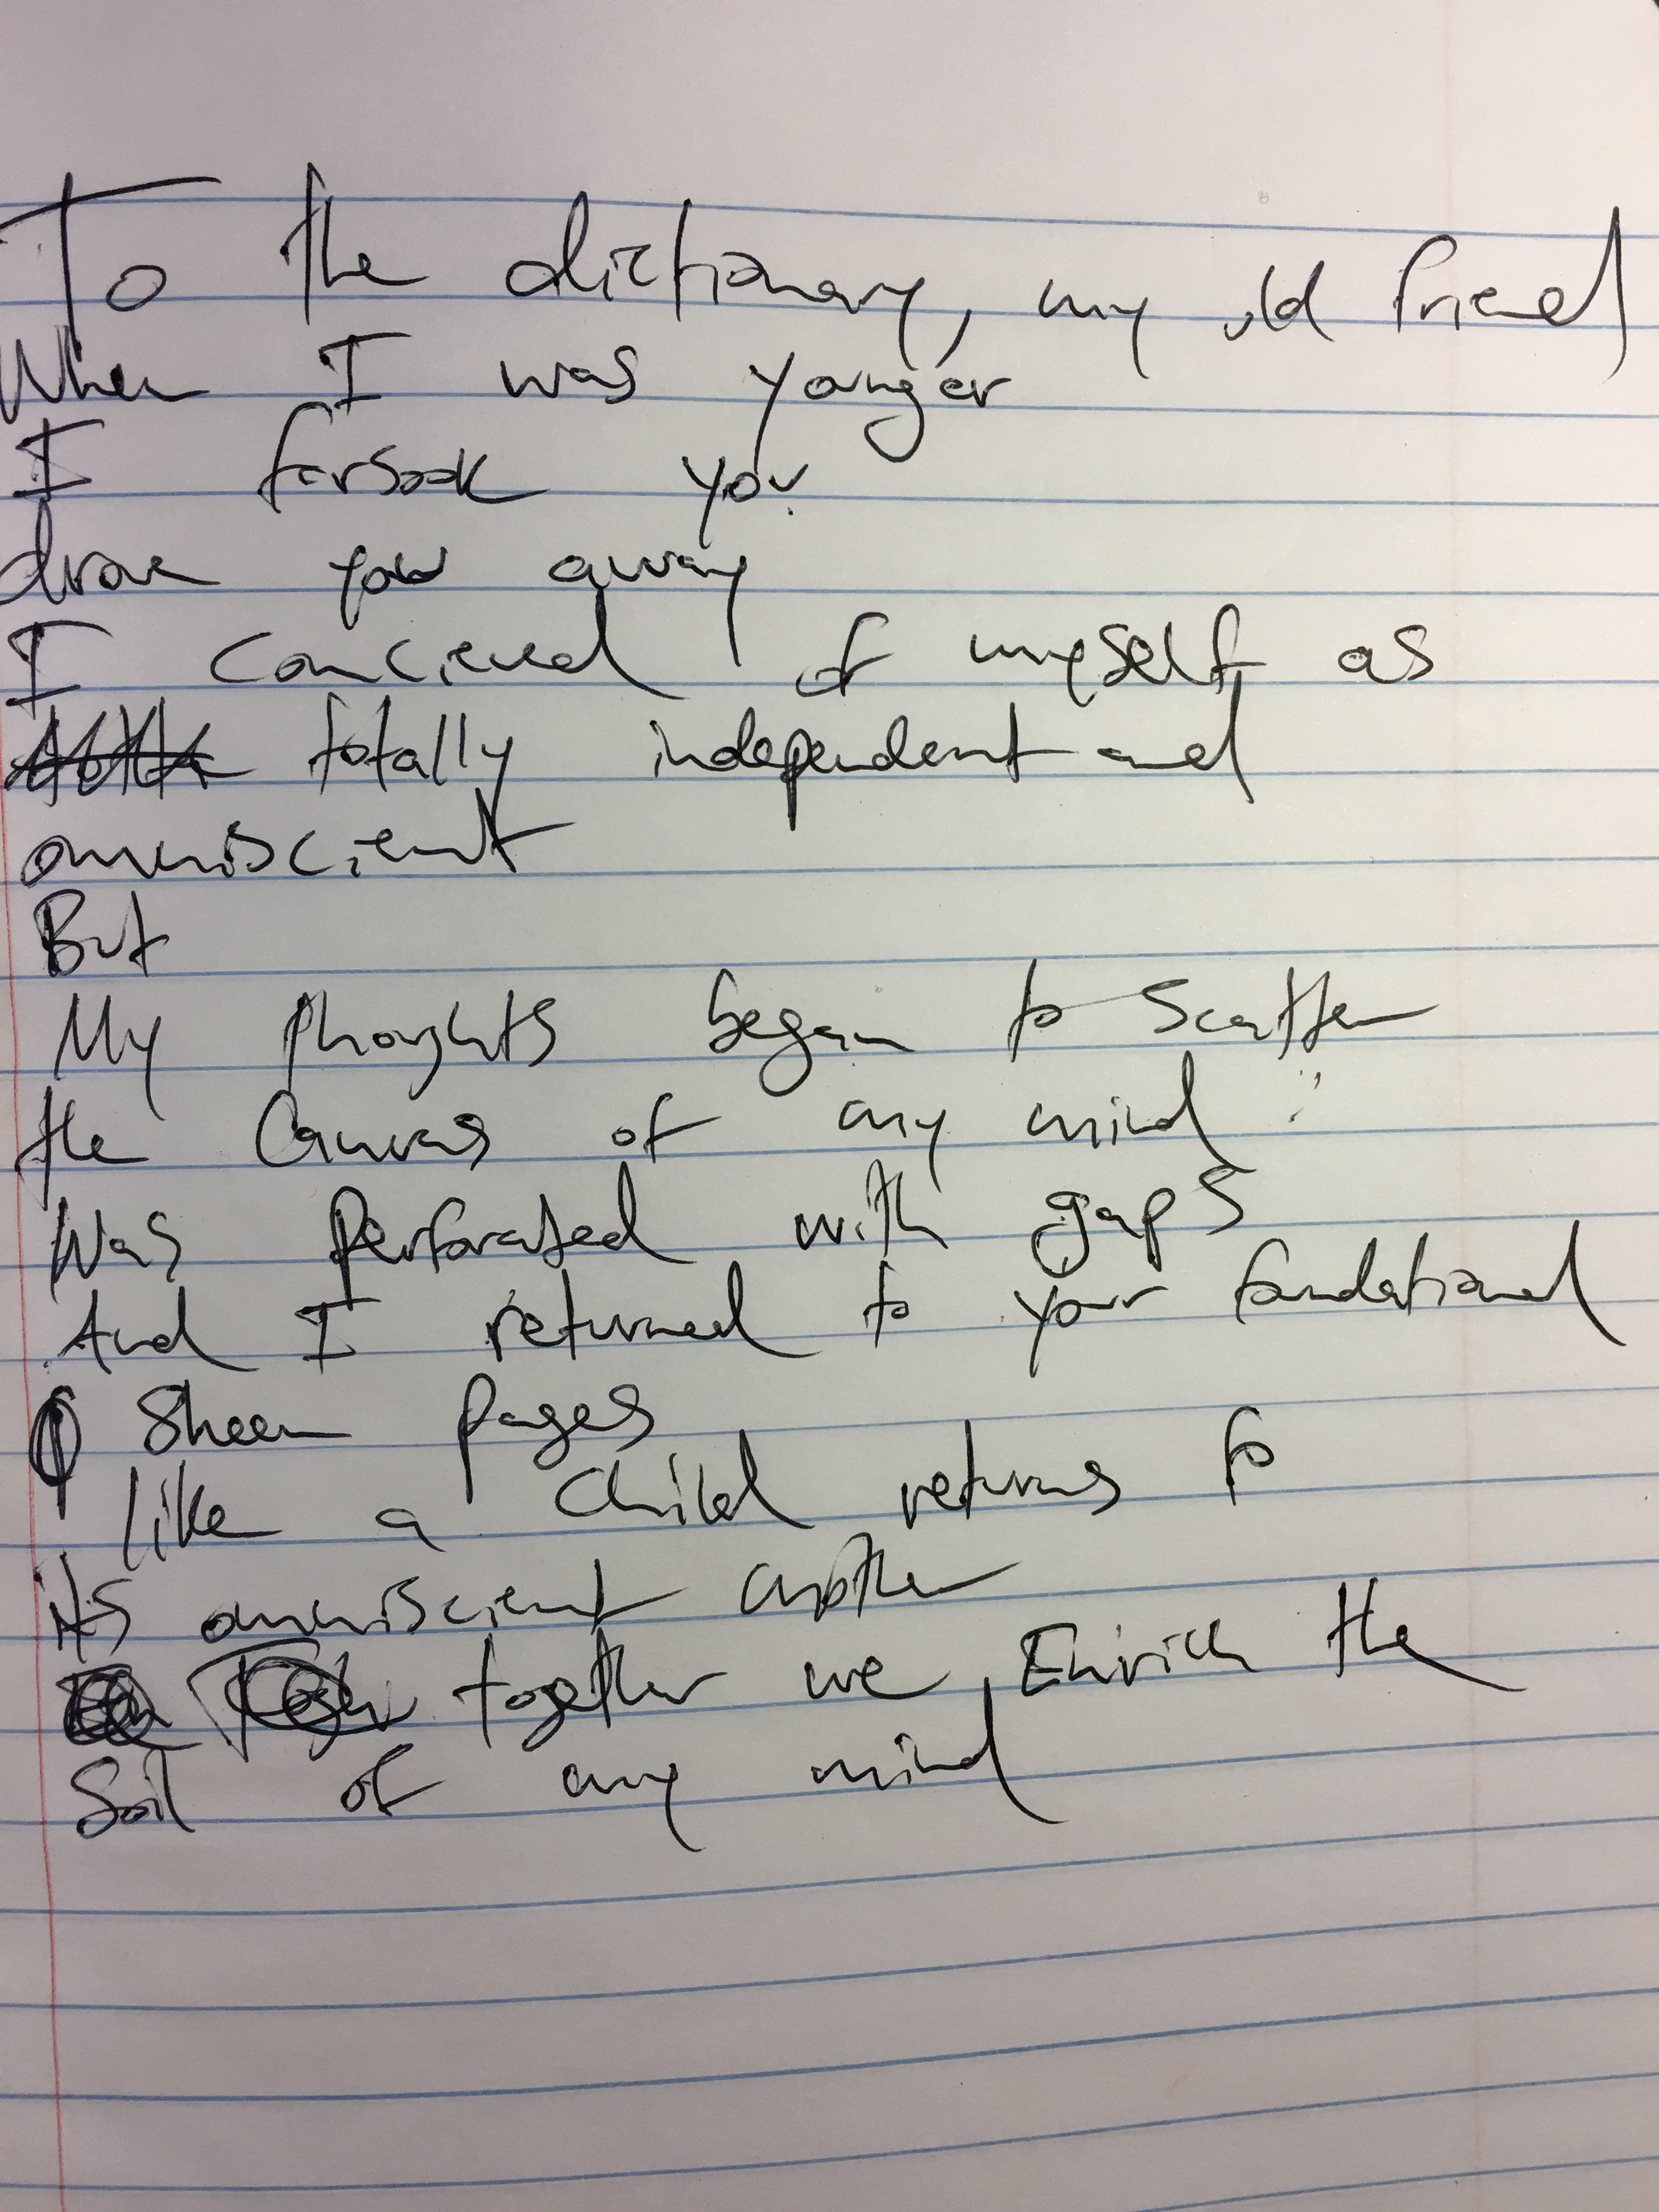 To the dictionary, my old friend
When I was younger
I forsook you
drove you away
I concieved of myself as
totally independent and
omniscient
But
My thoughts began to scatter
the Canvas of my mind
Was perforated with gaps
And I returned to your foundational
Sheen pages
like a child returns to
its omniscient mother
together we Enrich the
Soil of my mind